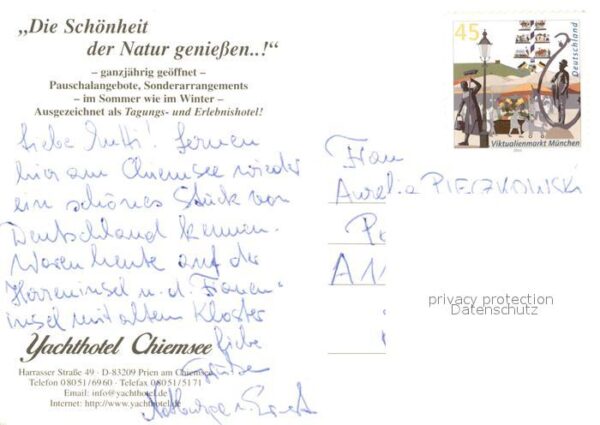 „Die Schönheit
der Natur genießen..!“
– ganzjährig geöffnet –
Pauschalangebote, Sonderarrangements
– im Sommer wie im Winter –
Ausgezeichnet als Tagungs- und Erlebnishotel!
Liebe Mutti! Lernen
hier am Chiemsee wieder
ein schönes Stück von
Deutschland kennen.
Waren heute auf der
Herreninsel u. d. Frauen-
insel mit altem Kloster
Liebe
Grüße
u. Ernst
Yachthotel Chiemsee
Harrasser Straße 49 · D-83209 Prien am Chiemsee
Telefon 08051/6960 · Telefax 08051/5171
Email: info@yachthotel.de
Internet: http://www.yachthotel.de
45
Deutschland
Viktualienmarkt München
Frau
Aurelia PIECZKOWSKI
P
A 11
privacy protection
Datenschutz